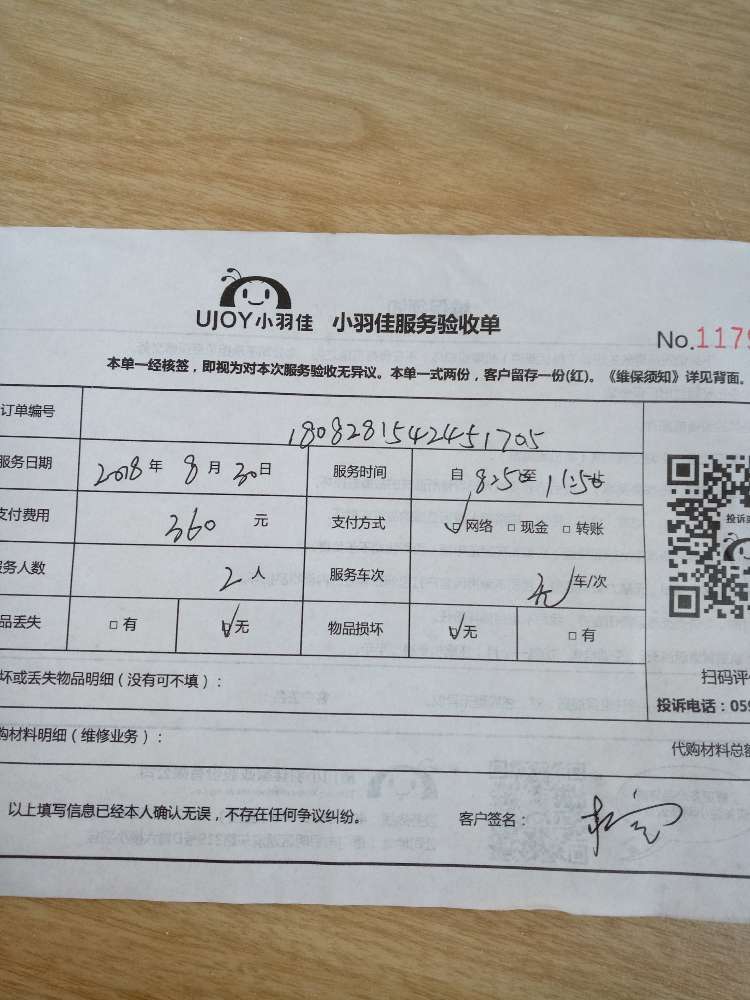 UJOY小羽佳 小羽佳服务验收单
No.1179
本单一经核签，即视为对本次服务验收无异议。本单一式两份，客户留存一份(红)。《维保须知》详见背面。
订单编号 180828154244517​05
服务日期 2018年 8月30日 服务时间 自 8:50至 11:50止
支付费用 360 元 支付方式 网络 现金 转账
务人数 2人 服务车次 车/次
品丢失 有 无 物品损坏 无 有
坏或丢失物品明细（没有可不填）：
扫码评
投诉电话：059
购材料明细（维修业务）：
代购材料总额
以上填写信息已经本人确认无误，不存在任何争议纠纷。
客户签名：
投诉